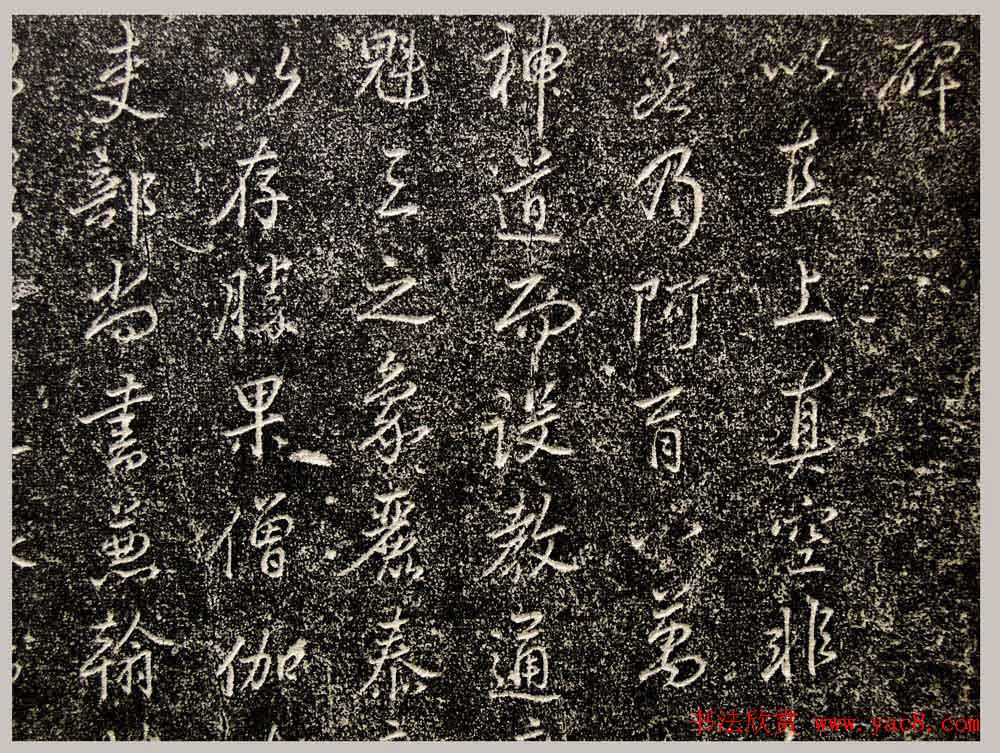 碑
以直上真空非
若乃阿育八萬
神道而設教通
魁三之象麗泰
以存勝果僧伽
吏部尚書兼翰
书法欣赏 www.yac8.com